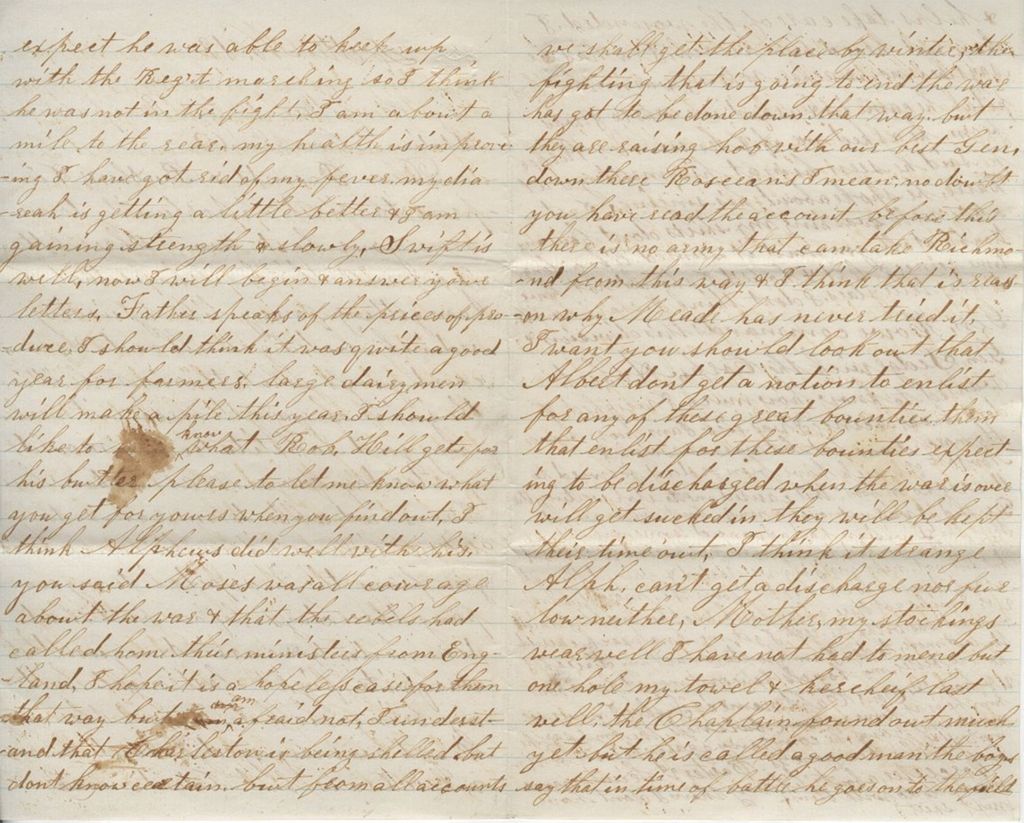 expect he was able to keek up
with the Reg't marching so I think
he was not in the fight, I am about a
mile to the rear, my health is improv-
-ing I have got rid of my fever. my dia
-reah is getting a little better & I am
gaining strength & slowly, Swift is
well, now I will begin & answer your
letters, Father speaks of the prices of pro-
-duce, I should think it was quite a good
year for farmers. large dairymen
will make a pile this year. I should
like to know what Rob. Hill gets for
his butter please to let me know what
you get for yours when you find out, I
think Alpheus did well with his.
you said Moses was all courage
about the war & that the rebels had
called home their ministers from Eng-
-land, I hope it is a hopeless case for them
that way but am afraid not, I underst-
-and that Charleston is being shelled but
dont know certain. but from all accounts
we shall get the place by winter, the
fighting that is going to end the war
has got to be done down that way. but
they are raising hob with our best Gen,
down there Rosecrans I mean. no doubt
you have read the account before this
there is no army that can take Richmo-
-nd from this way & I think that is reas-
-on why Meade has never tried it.
I want you should look out that
Albert dont get a notion to enlist
for any of these great bounties them
that enlist for these bounties expect-
ing to be discharged when the war is over
will get sucked in they will be kept
their time out, I think it strange
Alph. can't get a discharge nor fur
low neither, Mother, my stockings
wear well I have not had to mend but
one hole my towel & kercheif last
well. the Chaplain found out much
yet. but he is called a good man the boys
say that in time of battle he goes on to the field